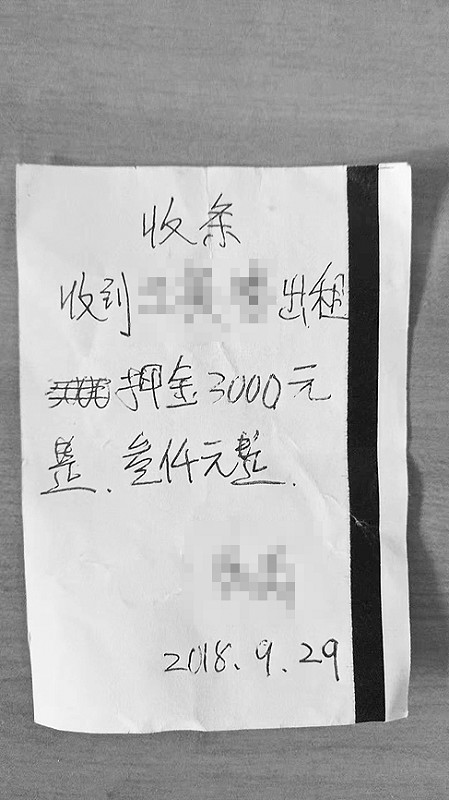 收条
收到 出租
押金3000元
整.叁仟元整.
2018.9.29